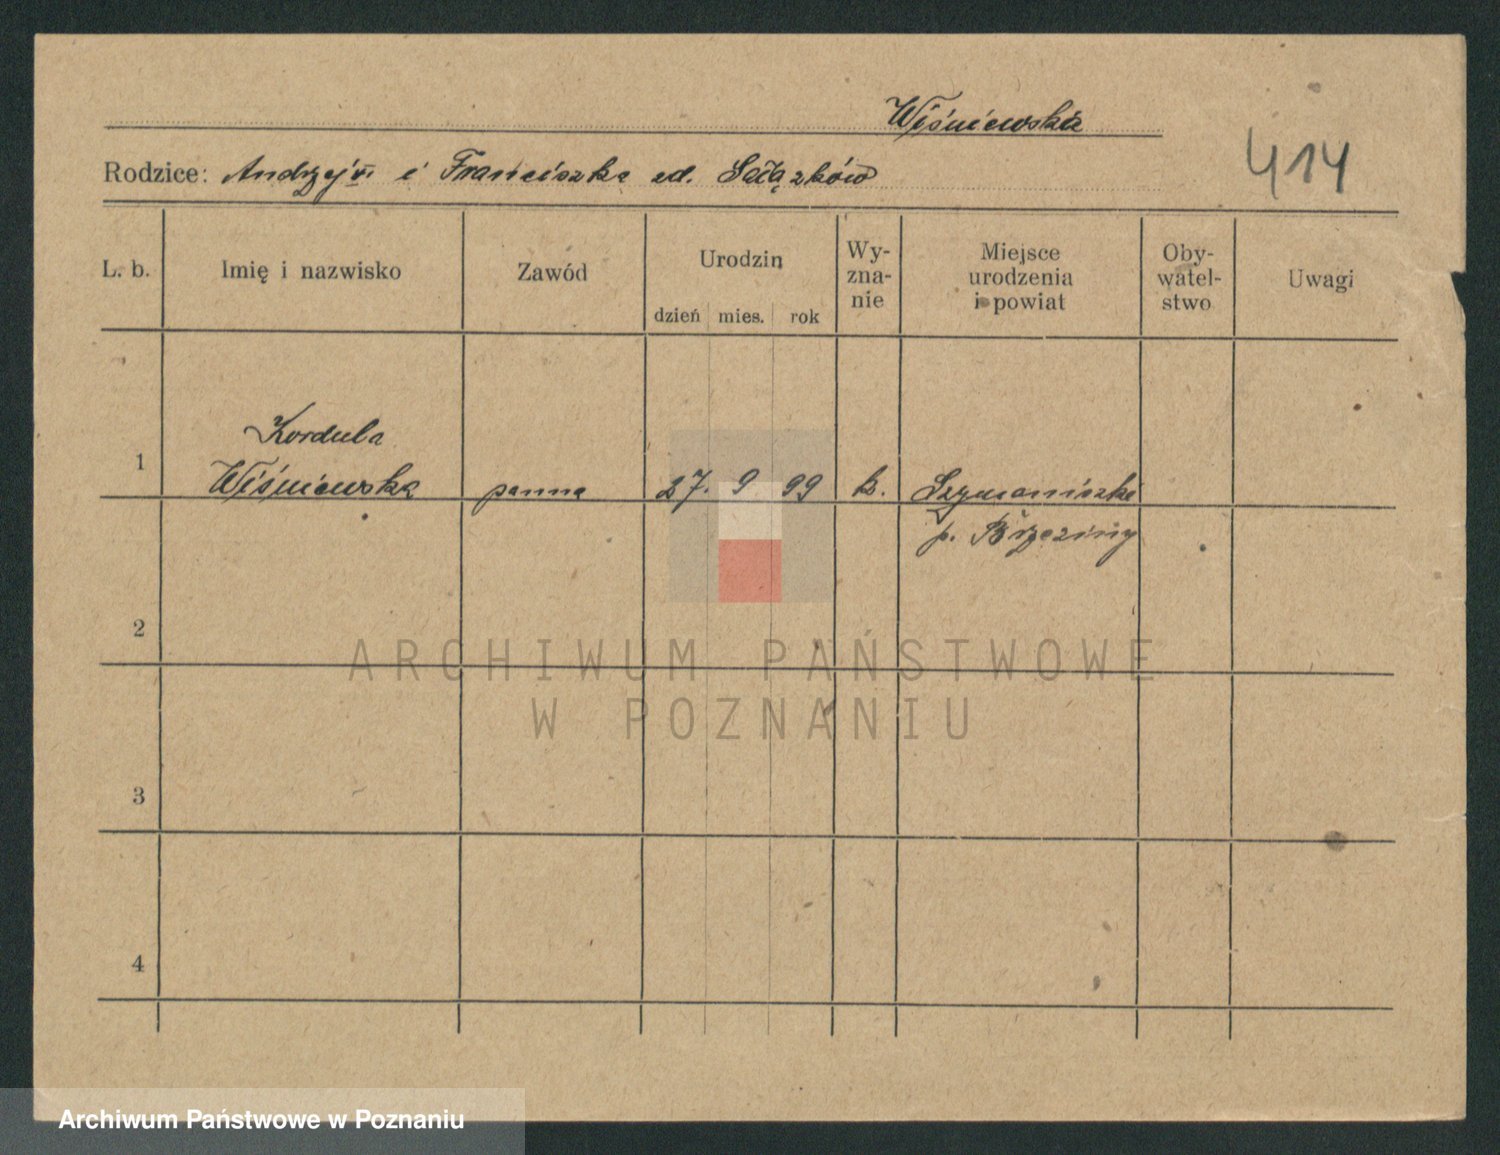 Wiśniewska
414
Rodzice: Andrzej i Franciszka zd.
L. b. Imię i nazwisko Zawód Urodzin dzień mies. rok Wy-zna-nie Miejsce urodzenia i powiat Oby-watel-stwo Uwagi
Kordula
1 Wiśniewska panna 27. 9 99 k. Szymaniszki
p. Brzeziny
2
ARCHIWUM PAŃSTWOWE
W POZNANIU
3
4
Archiwum Państwowe w Poznaniu